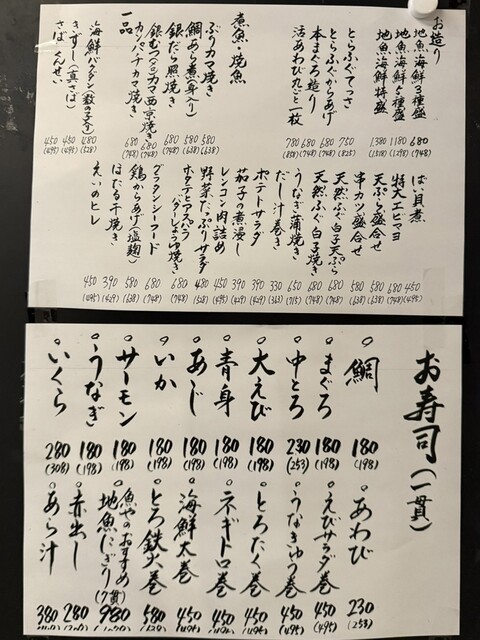 お造り
地魚海鮮3種盛 680 (748)
地魚海鮮5種盛 1180 (1298)
地魚海鮮特盛 1380 (1518)
とらふぐてっさ 750 (825)
とらふぐからあげ 680 (748)
本まぐろ造り 680 (748)
活あわび丸ごと一枚 780 (858)
煮魚・焼魚
ぶりカマ焼き 580 (638)
鯛あら煮(身入り) 580 (638)
銀だら照焼き 680 (748)
銀むつ(メロ)カマ西京焼き 680 (748)
カンパチカマ焼き 680 (748)
一品
海鮮バクダン(数の子入り) 480 (528)
きずし(真さば) 450 (495)
さばくんせい 450 (495)
ばい貝煮 450 (495)
特大エビマヨ 680 (748)
天ぷら盛合せ 580 (638)
串カツ盛合せ 580 (638)
天然ふぐ白子天ぷら 680 (748)
天然ふぐ白子焼き 680 (748)
うなぎ蒲焼き 650 (715)
だし汁巻き 330 (363)
ポテトサラダ 390 (429)
茄子の煮浸し 390 (429)
レンコン肉詰め 450 (495)
野菜たっぷりサラダ 480 (528)
ホタテとアスパラバターしょうゆ焼き 680 (748)
グラタンシーフード 680 (748)
鶏からあげ(塩麹) 580 (638)
ほたる干焼き 390 (429)
えいのヒレ 450 (495)
お寿司(一貫)
鯛 180 (198)
まぐろ 180 (198)
中とろ 230 (253)
大えび 180 (198)
青身 180 (198)
あじ 180 (198)
いか 180 (198)
サーモン 180 (198)
うなぎ 180 (198)
いくら 280 (308)
あわび 230 (253)
えびサラダ巻 450 (495)
うなきゅう巻 450 (495)
とろたく巻 450 (495)
ネギトロ巻 450
海鮮太巻 450
とろ鉄火巻 580
魚やのおすすめ地魚にぎり(7貫) 980
赤出し 280
あら汁 380